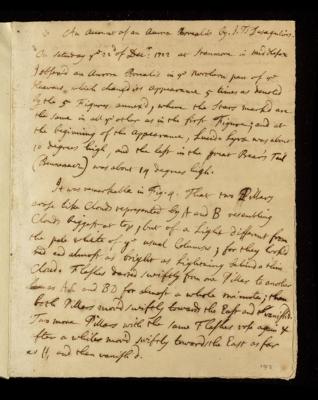 An Account of an Aurora Borealis by J. T. Desaguliers.
On Saturday ye 22d of Decr. 1722 at Stanmore in Middlesex
I observd an Aurora Borealis in ye Northern part of ye
Heavens, which changd its Appearance 5 times as denoted
by the 5 Figures annexd; where the Stars markd are
the same in all ye other as in the first Figure; and at
the beginning of the Appearance, Lucida Lyrae was about
10 degrees high, and the last in the great Bear's Tail
was about 14 degrees high.
It was remarkable in Fig. 4. That two Pillars
arose like Clouds represented by A and B resembling
Clouds biggest at top; but of a Light different from
the pale white of ye usual Columns; for they lookd
red almost as bright as lightening behind a thin
Cloud. Flashes darted swiftly from one Pillar to another
as and BD for almost a whole minute; then
both Pillars movd swiftly toward the East and vanishd.
Two more Pillars with the same Flashes rose again &
after a while movd swiftly towards the East as far
as and then vanish'd.